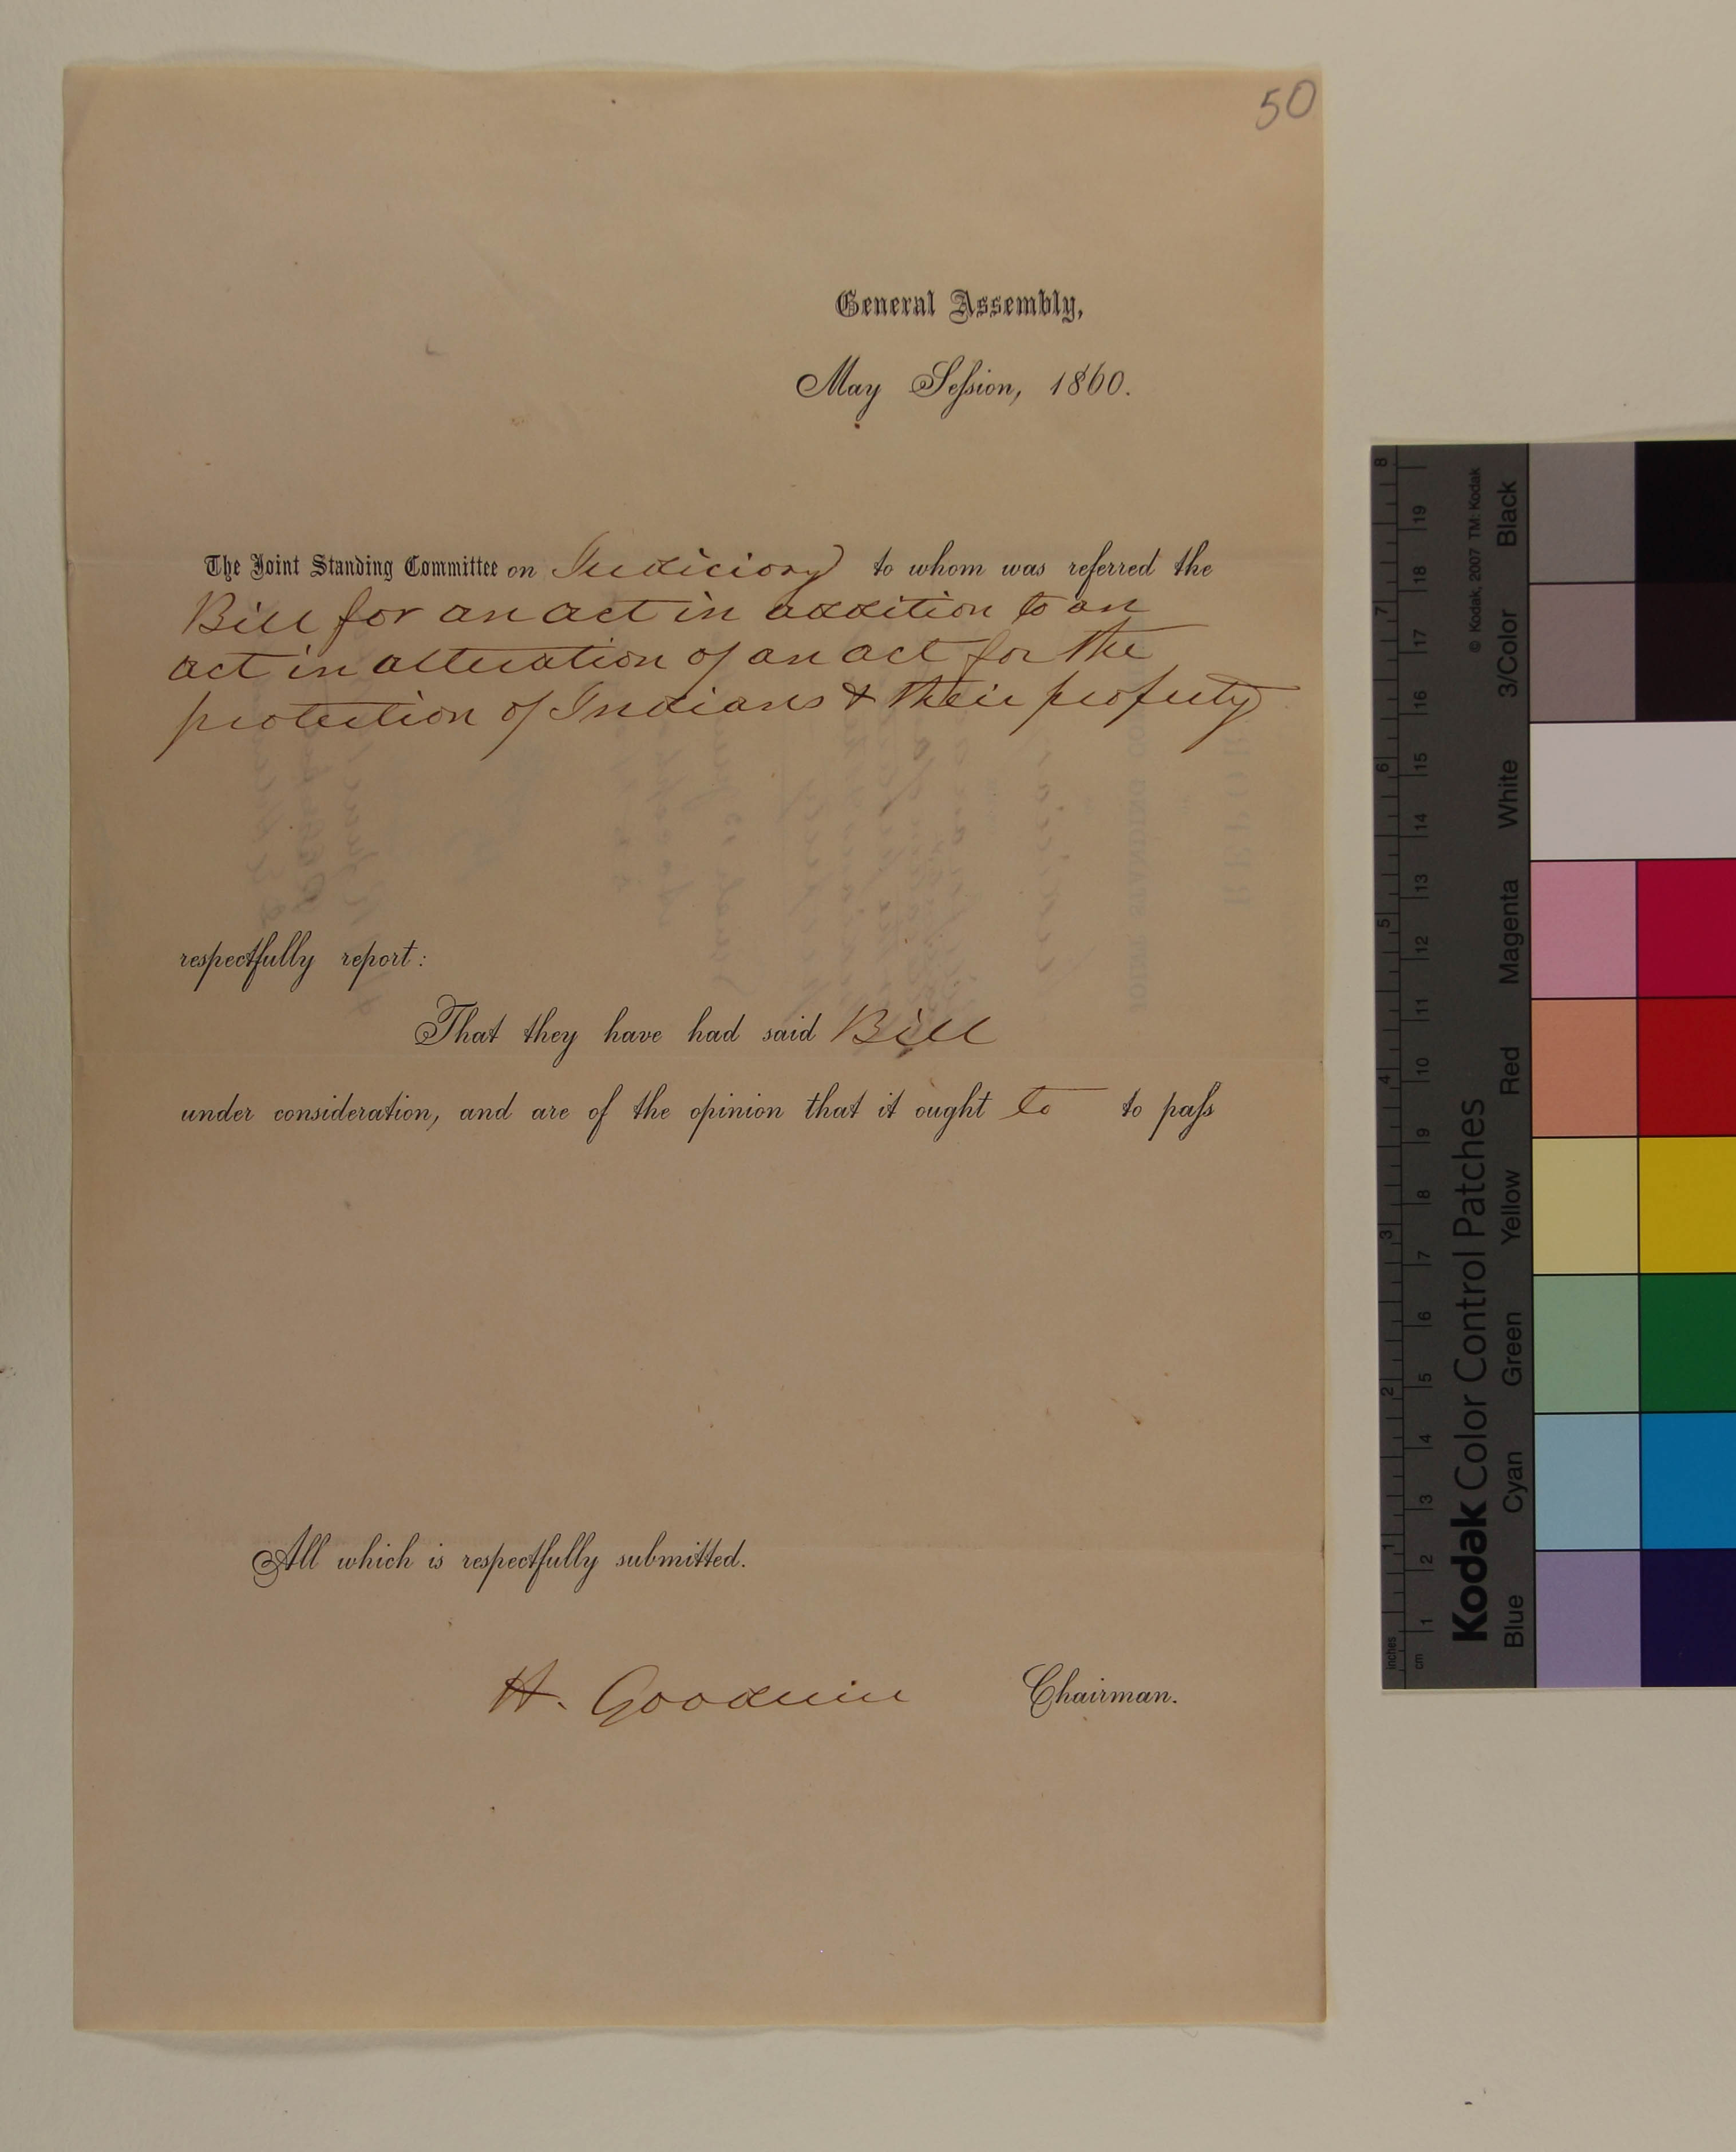 50
General Assembly,
May Session, 1860.
The Joint Standing Committee on Judiciary to whom was referred the
Bill for an act in addition to an
act in alteration of an act for the
protection of Indians & their property
respectfully report:
That they have had said Bill
under consideration, and are of the opinion that it ought to to pass
All which is respectfully submitted.
H. Goodwin Chairman.
© Kodak, 2007 TM: Kodak
Kodak Color Control Patches
Blue Cyan Green Yellow Red Magenta White 3/Color Black
inches 1 2 3 4 5 6 7 8
cm 1 2 3 4 5 6 7 8 9 10 11 12 13 14 15 16 17 18 19